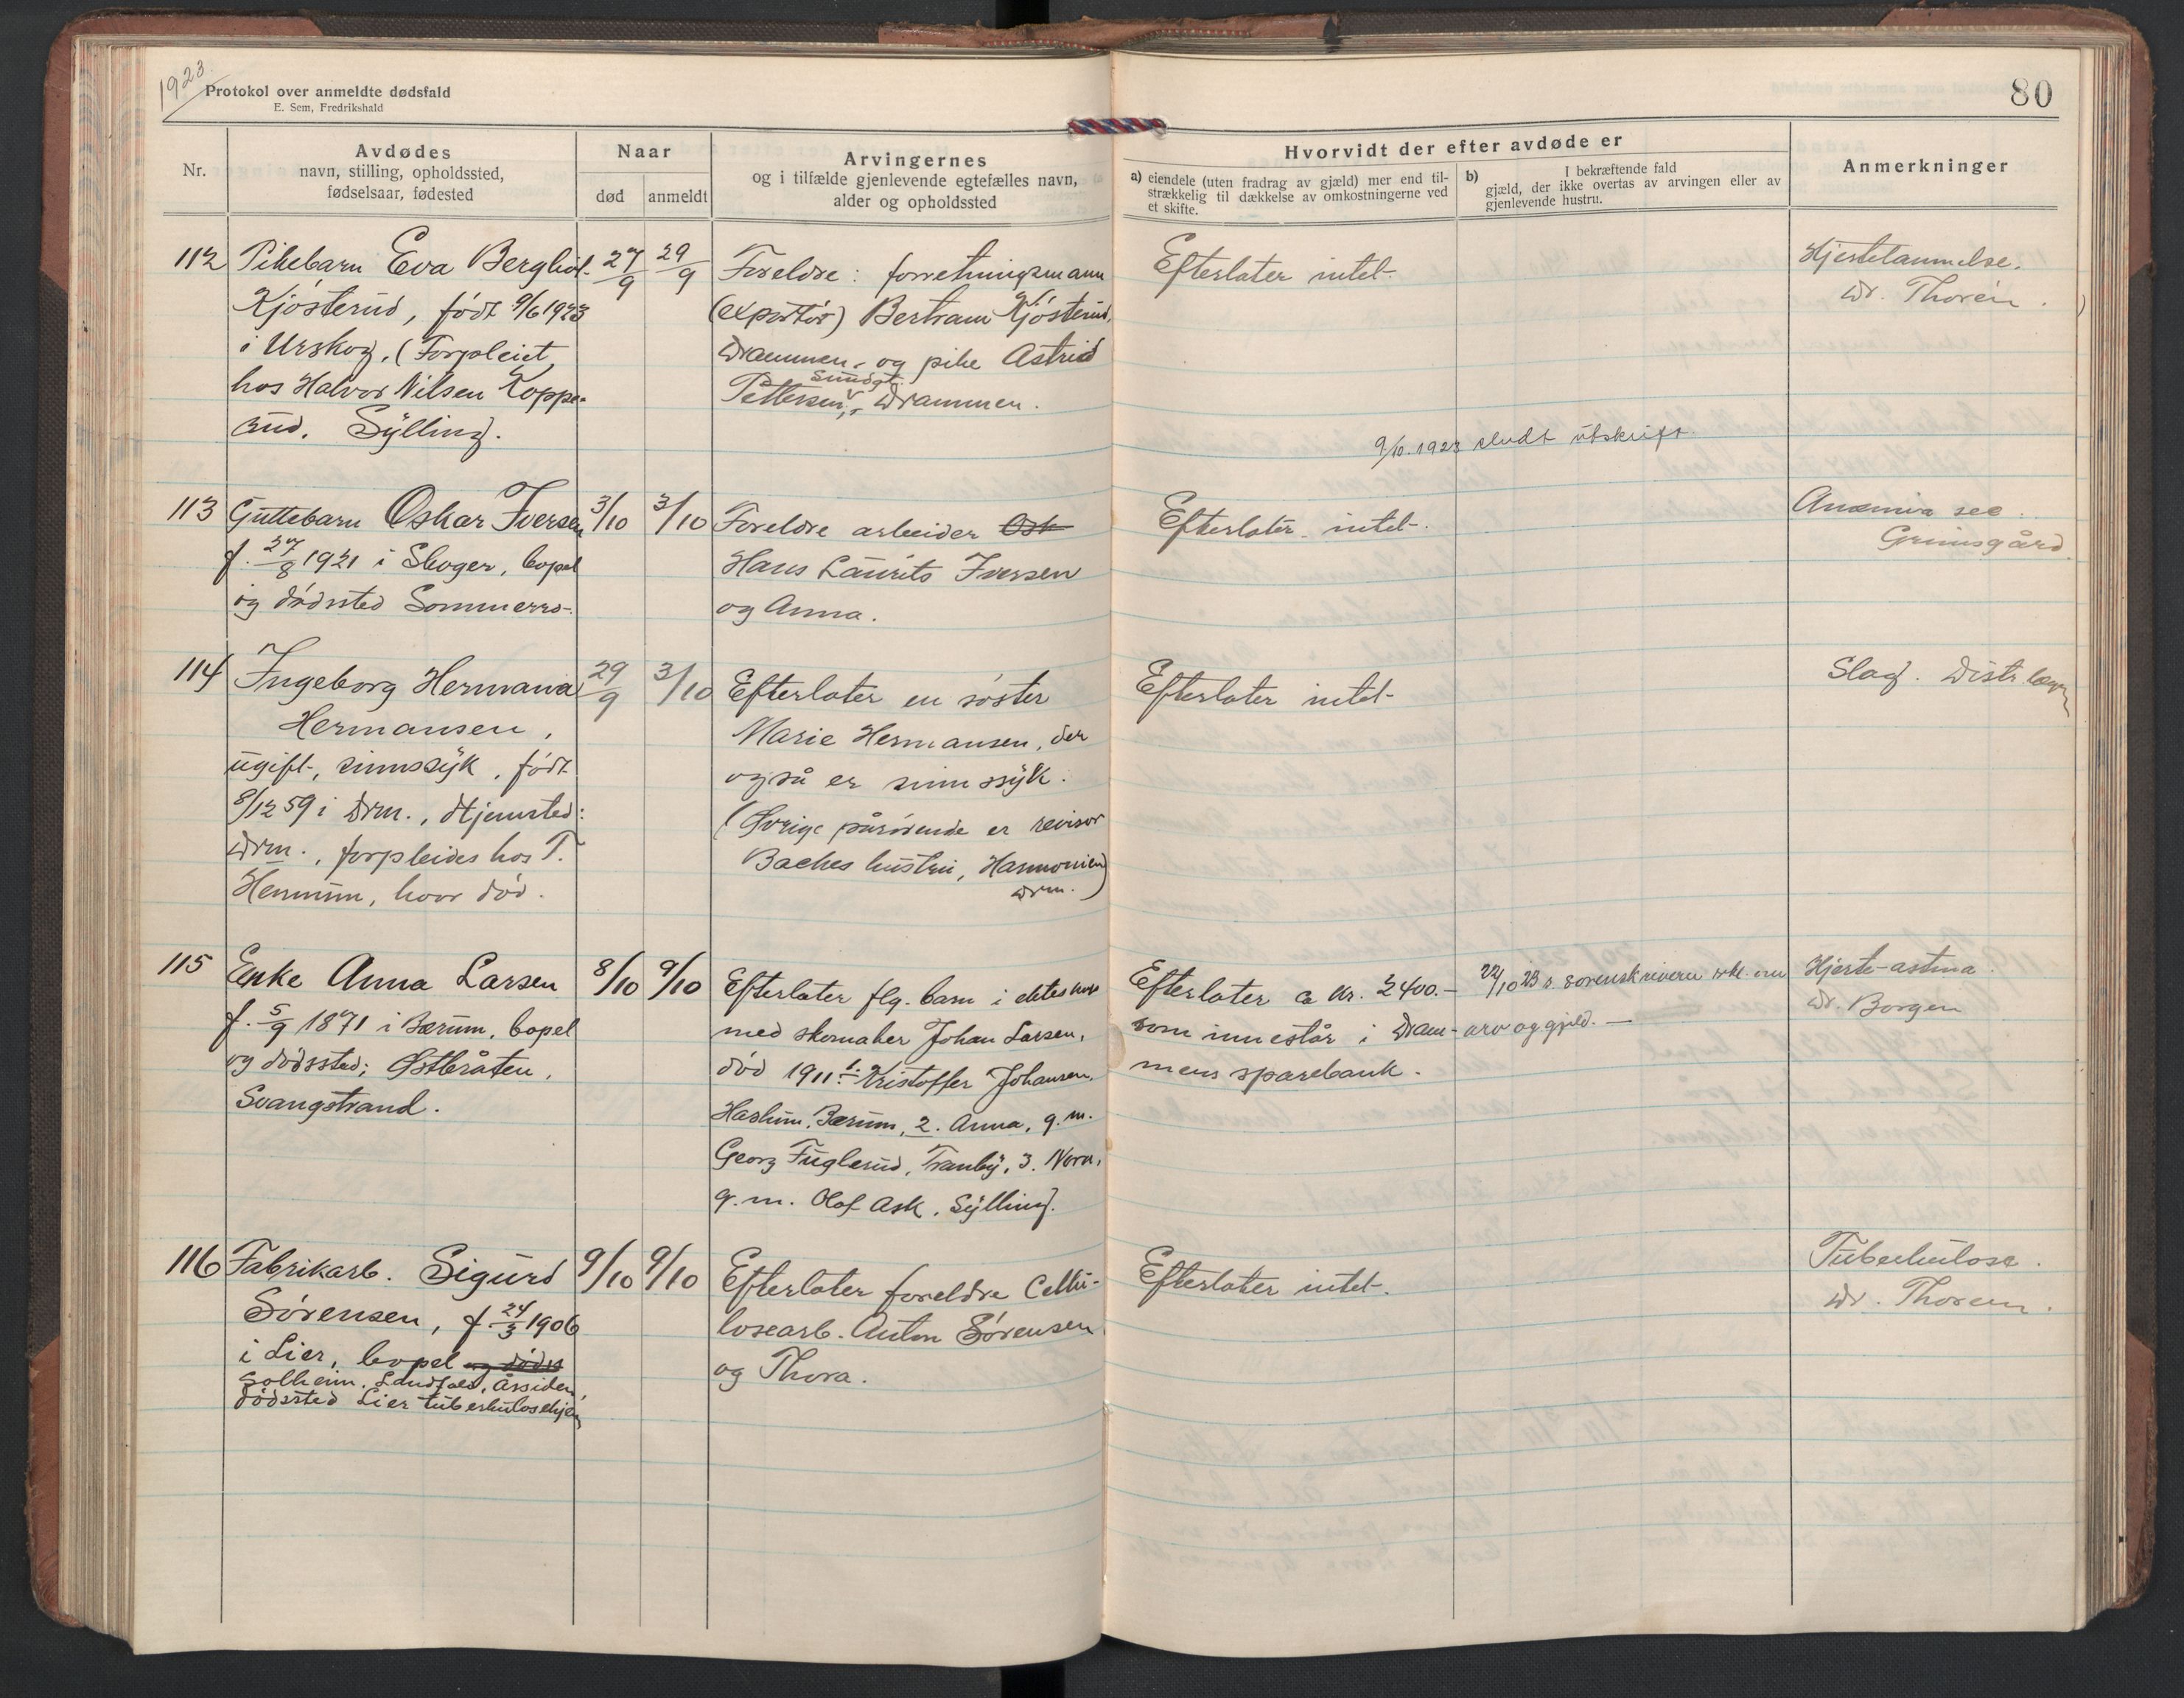 1923.
Protokol over anmeldte dødsfald
E. Sem, Fredrikshald
80
Nr.
Avdødes
navn, stilling, opholdssted,
fødselsaar, fødested
Naar
død
anmeldt
Arvingernes
og i tilfælde gjenlevende egtefælles navn,
alder og opholdssted
Hvorvidt der efter avdøde er
a) eiendele (uten fradrag av gjæld) mer end til-
strækkelig til dækkelse av omkostningerne ved
et skifte.
b) I bekræftende fald
gjæld, der ikke overtas av arvingen eller av
gjenlevende hustru.
Anmerkninger
112
Pikebarn Eva Bergliot
Kjøsterud, født 9/6 1923
i Urskog. (Forpleiet
hos Halvor Nilsen Koppe-
rud. Sylling.
27/9
29/9
Foreldre: forretningsmann
(exportør) Bertram Kjøsterud,
Drammen, og pike Astrid
Sundgt.
Pettersen, Drammen.
Efterlater intet.
9/10 1923 sendt utskrift.
Hjertelammelse.
Dr. Thorén.
113
Guttebarn Oskar Iversen
f. 27/8 1921 i Skoger, bopel
og dødssted Sommerro.
3/10
3/10
Foreldre arbeider Osk
Hans Laurits Iversen
og Anna.
Efterlater intet.
Anæmia
Grimsgård.
114
Ingeborg Hermana
Hermansen,
ugift, sinnssyk, født
8/12 59 i Drm., Hjemsted:
Drm., forpleides hos T.
Hennum, hvor død.
29/9
3/10
Efterlater en søster
Marie Hermansen, der
også er sinnssyk.
(Øvrige pårørende er revisor
Baches hustru, Harmonien
Drm.)
Efterlater intet.
Slag. Distr.lægen
115
Enke Anna Larsen
f. 5/9 1871 i Bærum, bopel
og dødssted: Østbråten,
Svangstrand.
8/10
9/10
Efterlater flg. barn i ekteskap
med skomaker Johan Larsen,
død 1911: 1. Kristoffer Johansen,
Haslum, Bærum, 2. Anna, g. m.
Georg Fuglerud, Tranby, 3. Nora,
g. m. Olaf Ask, Sylling.
Efterlater ca kr. 2400.-
som innestår i Dram-
mens sparebank.
22/10 23 s. sorenskriveren erkl. om
arv og gjeld. —
Hjerte-astma.
Dr. Borgen
116
Fabrikarb. Sigurd
Sørensen, f. 24/3 1906
i Lier, bopel og døds
Solheim, Landfald, Åssiden,
dødssted Lier tuberkulosehjem
9/10
9/10
Efterlater foreldre Cellu-
losearb. Anton Sørensen
og Thora.
Efterlater intet.
Tuberkulose.
Dr. Thorén.